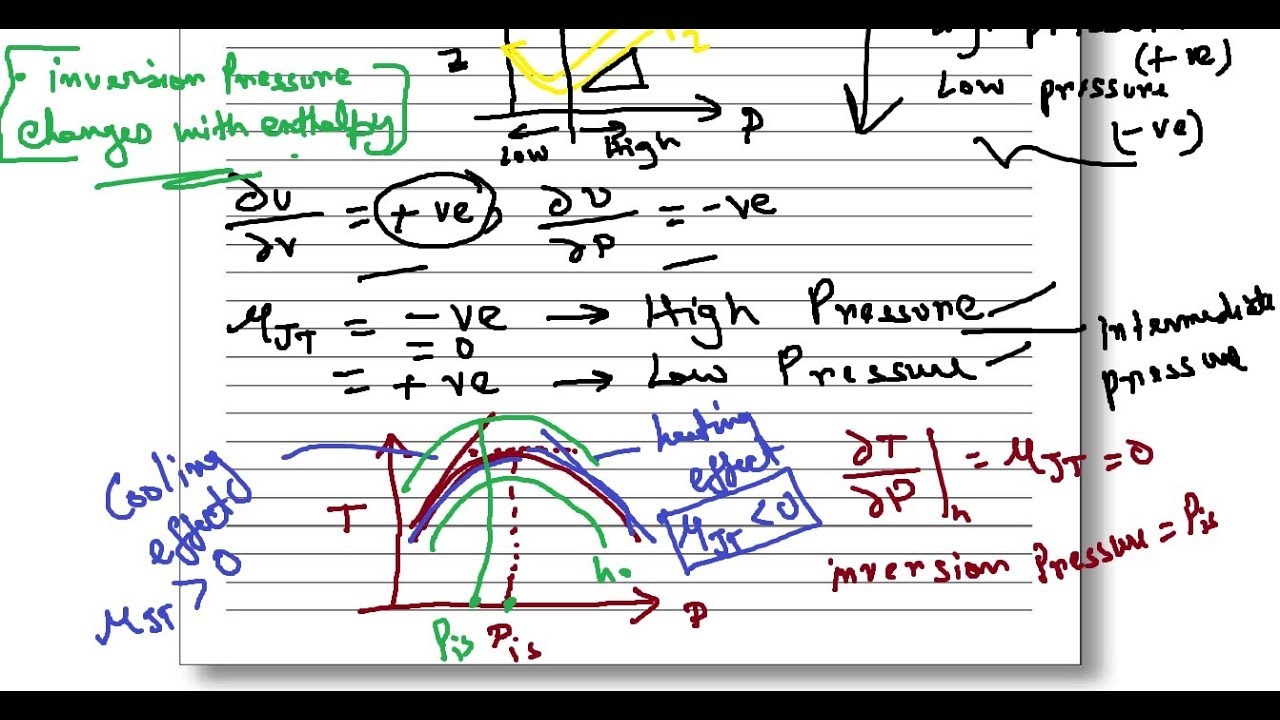 • inversion Pressure
changes with enthalpy
Z
P
Low High
(+ve)
Low pressure
(-ve)
∂U/∂V = +ve, ∂U/∂P = -ve
μJT = -ve → High Pressure
= 0
= +ve → Low Pressure
intermediate
pressure
Cooling
effect
μJT > 0
heating
effect
μJT < 0
T
h.
P
Pis Pis
∂T/∂P|h = μJT = 0
inversion Pressure = Pis